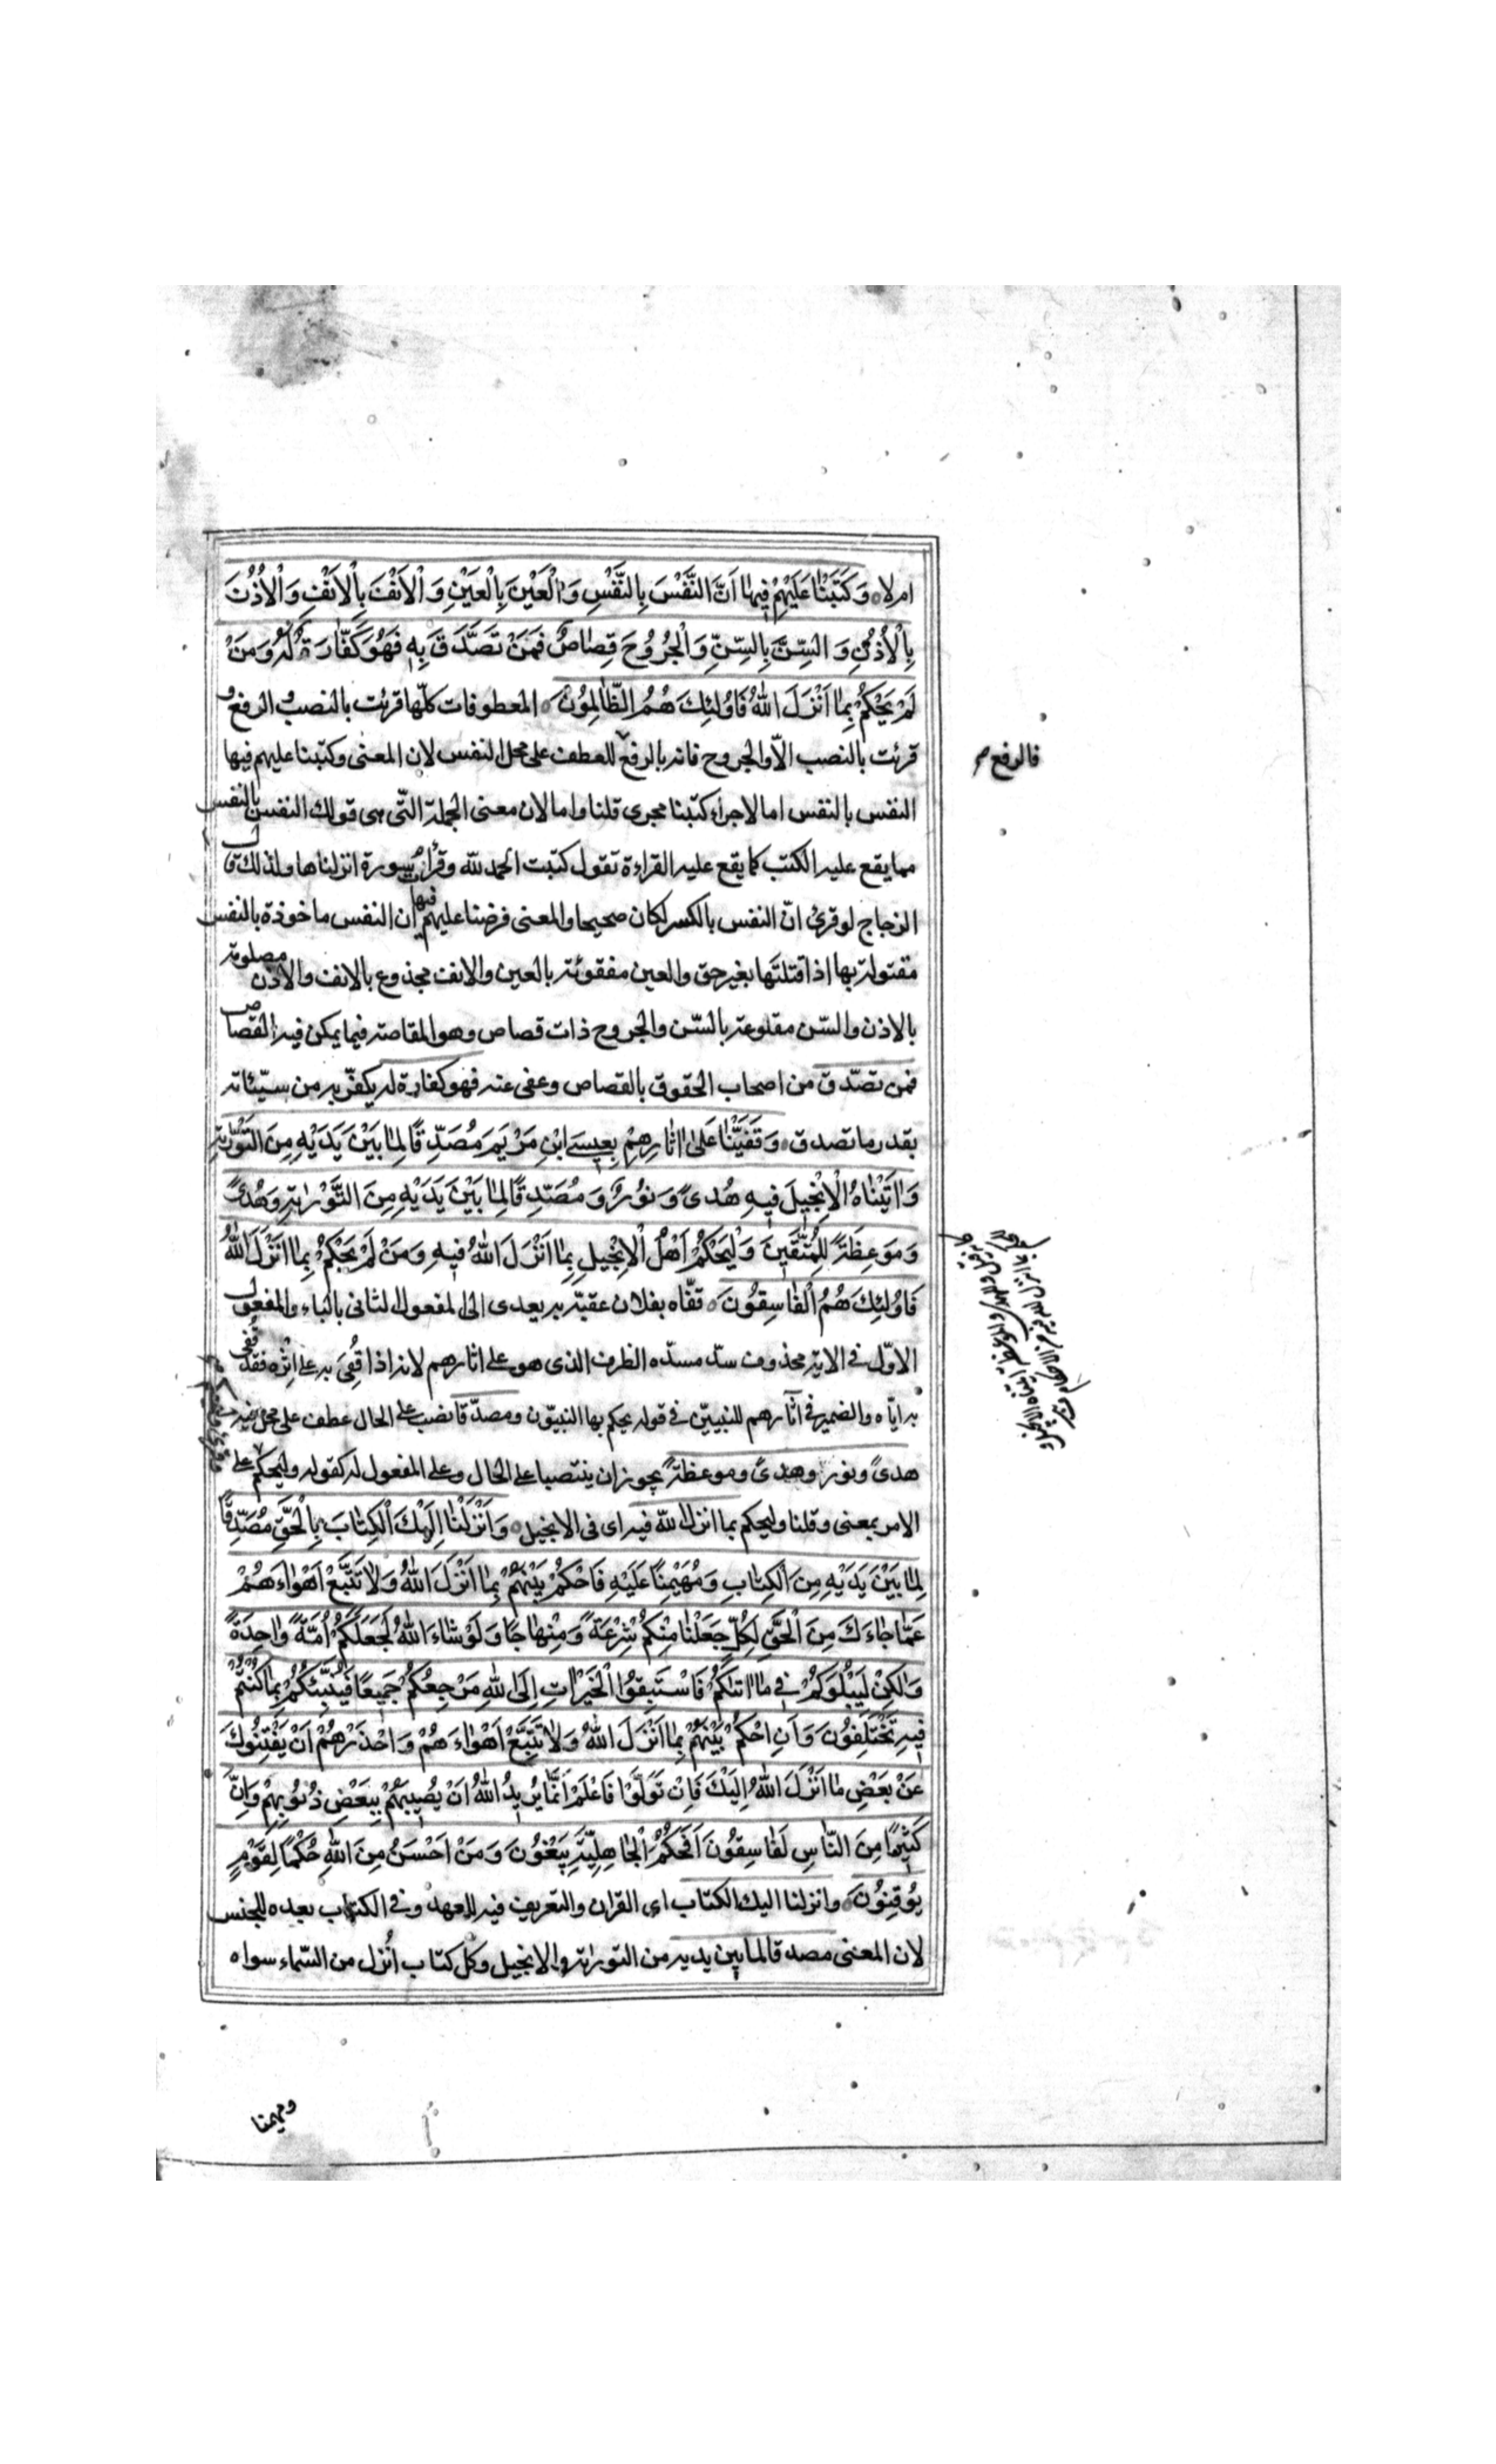 ام لا ۝ وَكَتَبْنٰا عَلَيْهِمْ فِيهٰا اَنَّ النَّفْسَ بِالنَّفْسِ وَالْعَيْنَ بِالْعَيْنِ وَالْاَنْفَ بِالْاَنْفِ وَالْاُذُنَ
بِالْاُذُنِ وَالسِّنَّ بِالسِّنِّ وَالْجُرُوحَ قِصٰاصٌ فَمَنْ تَصَدَّقَ بِهِ فَهُوَ كَفّٰارَةٌ لَهُ وَمَنْ
لَمْ يَحْكُمْ بِمٰا اَنْزَلَ اللّٰهُ فَاُولٰئِكَ هُمُ الظّٰالِمُونَ ۝ المعطوفات كلّها قرئت بالنصب و الرفع و
قرئت بالنصب الّا والجروح فانه بالرفع للعطف على محل النفس لان المعنى وكتبنا عليهم فيها
فالرفع
النفس بالنفس اما لاجراء كتبنا مجرى قلنا واما لان معنى الجملة الّتى هى قولك النفس بالنفس
مما يقع عليه الكتب كما يقع عليه القراءة تقول كتبت الحمد لله وقرأت سورة انزلناها ولذلك قال
الزجاج لو قرئ انّ النفس بالكسر لكان صحيحا والمعنى فرضنا عليهم فيها ان النفس ماخوذة بالنفس
مقتولة بها اذا قتلتها بغير حق والعين مفقوئة بالعين والانف مجذوع بالانف والاذن مصلومة
بالاذن والسّن مقلوعة بالسّن والجروح ذات قصاص وهو المقاصة فيما يمكن فيه القصاص
فمن تصدّق من اصحاب الحقوق بالقصاص وعفى عنه فهو كفارة له يكفّر به من سيّئاته
بقدر ما تصدق ۝ وَقَفَّيْنٰا عَلىٰ اٰثٰارِهِمْ بِعِيسَى ابْنِ مَرْيَمَ مُصَدِّقًا لِمٰا بَيْنَ يَدَيْهِ مِنَ التَّوْرٰيةِ
وَاٰتَيْنٰاهُ الْاِنْجِيلَ فِيهِ هُدىً وَنُورٌ وَمُصَدِّقًا لِمٰا بَيْنَ يَدَيْهِ مِنَ التَّوْرٰيةِ وَهُدىً
وَمَوْعِظَةً لِلْمُتَّقِينَ وَلْيَحْكُمْ اَهْلُ الْاِنْجِيلِ بِمٰا اَنْزَلَ اللّٰهُ فِيهِ وَمَنْ لَمْ يَحْكُمْ بِمٰا اَنْزَلَ اللّٰهُ
فَاُولٰئِكَ هُمُ الْفٰاسِقُونَ ۝ قفّاه بفلان عقبّه به يعدى الى المفعول الثانى بالباء والمفعول
الاوّل فى الاية محذوف سدّ مسدّه الظرف الذى هو على اثارهم لانه اذا قفى به على اثره فقد قفى
به ايّاه والضمير فى آثارهم للنبيين فى قوله يحكم بها النبيّون ومصدّقا نصب على الحال عطف على محل فيه
هدىً ونور وهدىً وموعظةً يجوز ان ينتصبا على الحال وعلى المفعول له كقوله وليحكم على
الامر بمعنى وقلنا وليحكم بما انزل الله فيه اى فى الانجيل ۝ وَاَنْزَلْنٰا اِلَيْكَ الْكِتٰابَ بِالْحَقِّ مُصَدِّقًا
لِمٰا بَيْنَ يَدَيْهِ مِنَ الْكِتٰابِ وَمُهَيْمِنًا عَلَيْهِ فَاحْكُمْ بَيْنَهُمْ بِمٰا اَنْزَلَ اللّٰهُ وَلٰا تَتَّبِعْ اَهْوٰاءَهُمْ
عَمّٰا جٰاءَكَ مِنَ الْحَقِّ لِكُلٍّ جَعَلْنٰا مِنْكُمْ شِرْعَةً وَمِنْهٰاجًا وَلَوْ شٰاءَ اللّٰهُ لَجَعَلَكُمْ اُمَّةً وٰاحِدَةً
وَلٰكِنْ لِيَبْلُوَكُمْ فِى مٰا اٰتٰيكُمْ فَاسْتَبِقُوا الْخَيْرٰاتِ اِلَى اللّٰهِ مَرْجِعُكُمْ جَمِيعًا فَيُنَبِّئُكُمْ بِمٰا كُنْتُمْ
فِيهِ تَخْتَلِفُونَ وَاَنِ احْكُمْ بَيْنَهُمْ بِمٰا اَنْزَلَ اللّٰهُ وَلٰا تَتَّبِعْ اَهْوٰاءَهُمْ وَاحْذَرْهُمْ اَنْ يَفْتِنُوكَ
عَنْ بَعْضِ مٰا اَنْزَلَ اللّٰهُ اِلَيْكَ فَاِنْ تَوَلَّوْا فَاعْلَمْ اَنَّمٰا يُرِيدُ اللّٰهُ اَنْ يُصِيبَهُمْ بِبَعْضِ ذُنُوبِهِمْ وَاِنَّ
كَثِيرًا مِنَ النّٰاسِ لَفٰاسِقُونَ اَفَحُكْمَ الْجٰاهِلِيَّةِ يَبْغُونَ وَمَنْ اَحْسَنُ مِنَ اللّٰهِ حُكْمًا لِقَوْمٍ
يُوقِنُونَ ۝ وانزلنا اليك الكتاب اى القران والتعريف فيه للعهد وفى الكتاب بعده للجنس
لان المعنى مصدقا لما بين يديه من التورٰية والانجيل وكل كتاب اُنزل من السّماء سواه
ومهيمنا